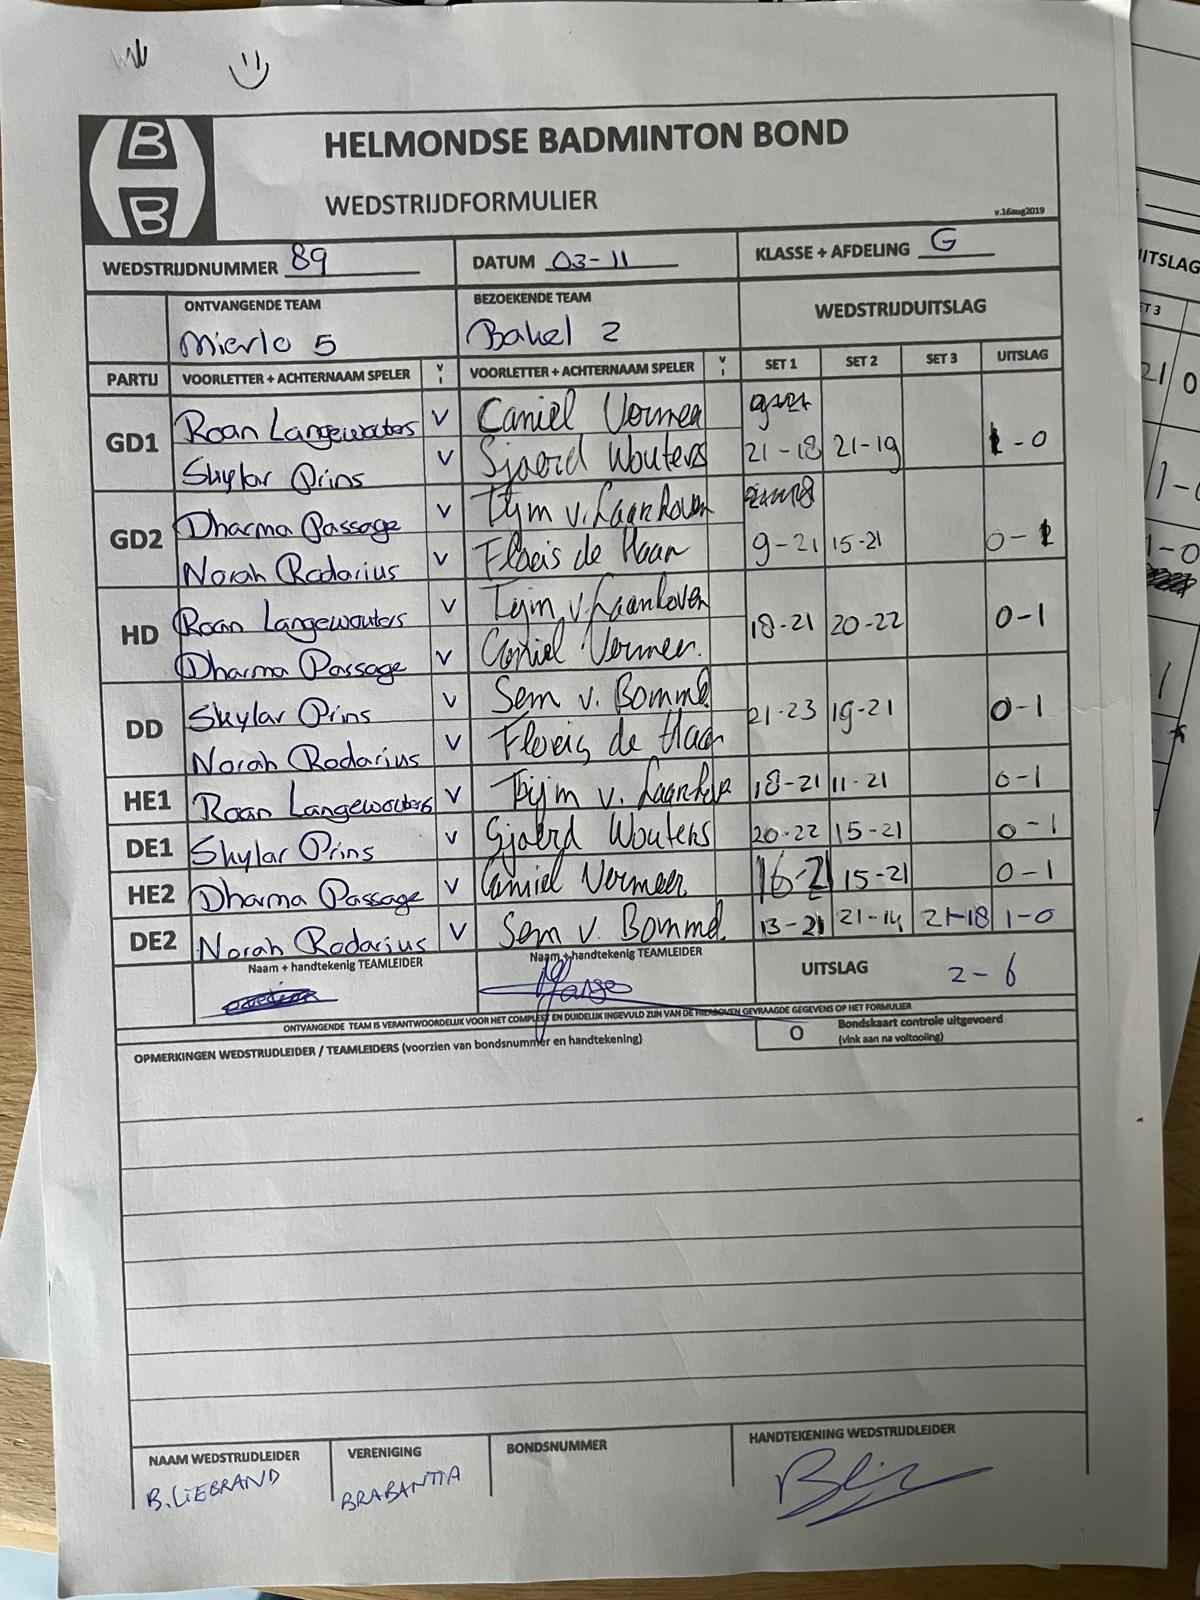 B
B
HELMONDSE BADMINTON BOND
WEDSTRIJDFORMULIER
v.16aug2019
WEDSTRIJDNUMMER 89 DATUM 03-11 KLASSE + AFDELING G
ONTVANGENDE TEAM BEZOEKENDE TEAM WEDSTRIJDUITSLAG
Mierlo 5 Bakel 2
PARTIJ VOORLETTER + ACHTERNAAM SPELER V I VOORLETTER + ACHTERNAAM SPELER V I SET 1 SET 2 SET 3 UITSLAG
GD1 Roan Langewouters V Camiel Vermeer
Skylar Prins V Sjoerd Wouters 21-18 21-19 1-0
GD2 Dharma Passage V Tijm v. Laarhoven
Norah Rodarius V Floris de Haan 9-21 15-21 0-1
HD Roan Langewouters V Tijm v. Laarhoven 18-21 20-22 0-1
Dharma Passage V Camiel Vermeer
DD Skylar Prins V Sem v. Bommel 21-23 19-21 0-1
Norah Rodarius V Floris de Haan
HE1 Roan Langewouters V Tijm v. Laarhoven 18-21 11-21 0-1
DE1 Skylar Prins V Sjoerd Wouters 20-22 15-21 0-1
HE2 Dharma Passage V Camiel Vermeer 16-21 15-21 0-1
DE2 Norah Rodarius V Sem v. Bommel 13-21 21-14 21-18 1-0
Naam + handtekenig TEAMLEIDER Naam + handtekenig TEAMLEIDER UITSLAG 2-6
ONTVANGENDE TEAM IS VERANTWOORDELIJK VOOR HET COMPLEET EN DUIDELIJK INGEVULD ZIJN VAN DE HIERBOVEN GEVRAAGDE GEGEVENS OP HET FORMULIER
OPMERKINGEN WEDSTRIJDLEIDER / TEAMLEIDERS (voorzien van bondsnummer en handtekening)
O Bondskaart controle uitgevoerd
(vink aan na voltooiing)
NAAM WEDSTRIJDLEIDER VERENIGING BONDSNUMMER HANDTEKENING WEDSTRIJDLEIDER
B. LIEBRAND BRABANTIA